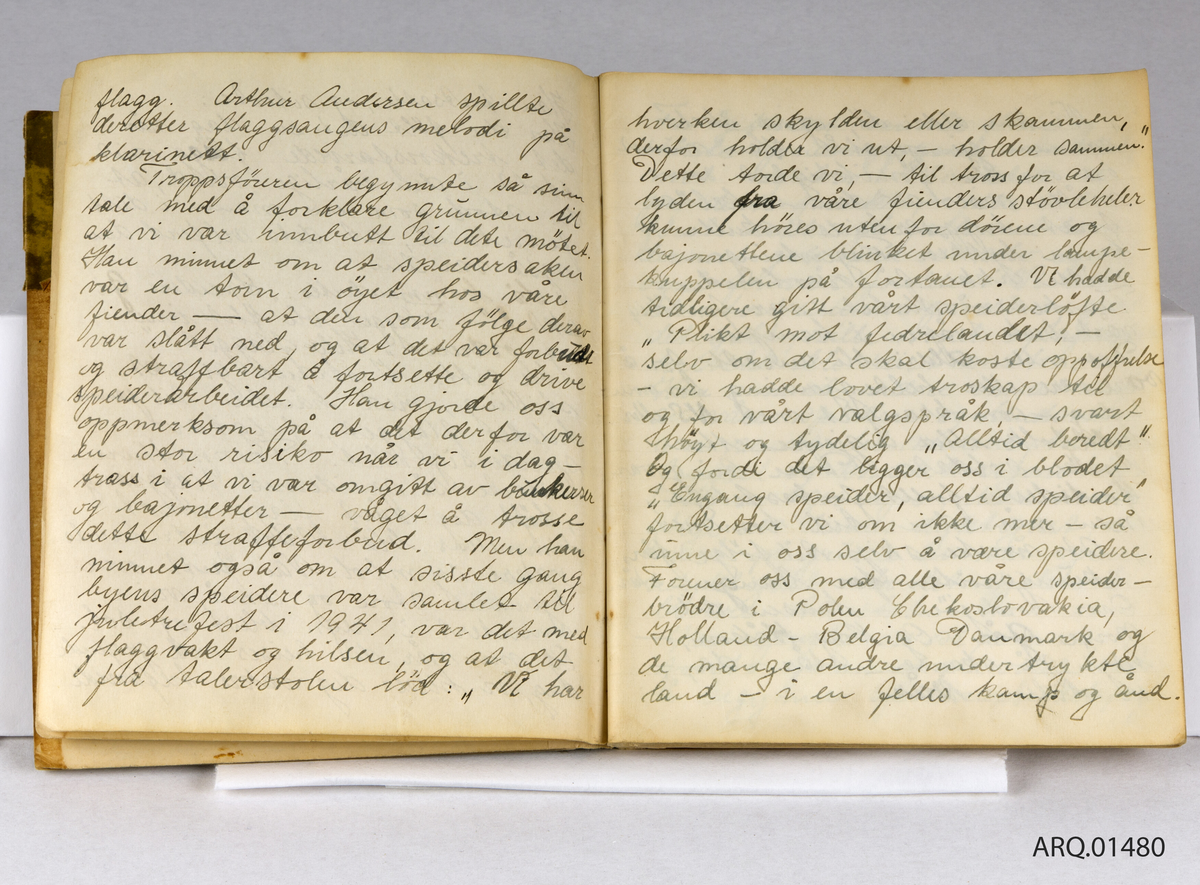 flagg. Arthur Andersen spillte
deretter flaggsangens melodi på
klarinett.
Troppsföreren begynnte så sinn
tale med å forklare grunnen til
at vi var innbutt til dete mötet.
Han minnet om at speidersaken
var en torn i öyet hos våre
fiender — at den som fölge derav
var slått ned, og at det var forbudt
og straffbart å fortsette og drive
speiderarbeidet. Han gjorde oss
oppmerksom på at det derfor var
en stor risiko når vi i dag –
trass i at vi var omgitt av bunkerser
og bajonetter — våget å trosse
dette straffeforbud. Men han
minnet også om at sisste gang
byens speidere var samlet til
juletrefest i 1941, var det med
flaggvakt og hilsen, og at det
fra talerstolen löd: „ Vi har
hverken skylden eller skammen,
derfor holder vi ut, – holder sammen."
Dette torde vi, – til tross for at
lyden fra våre fienders stövleheler
kunne höres utenfor dörene og
bajonettene blinket under lampe-
kuppelen på fortauet. Vi hadde
tidligere gitt vårt speiderlöfte
„ Plikt mot fedrelandet, –
selv om det skal koste oppofrelse
– vi hadde lovet troskap til
og for vårt valgspråk – svart
höyt og tydelig „Alltid beredt".
Og fordi det ligger oss i blodet
„Engang speider, alltid speider"
fortsetter vi om ikke mer – så
inne i oss selv å være speidere.
Forener oss med alle våre speider-
brödre i Polen Chekoslovakia,
Holland – Belgia Danmark og
de mange andre undertrykte
land – i en felles kamp og ånd.
ARQ.01480